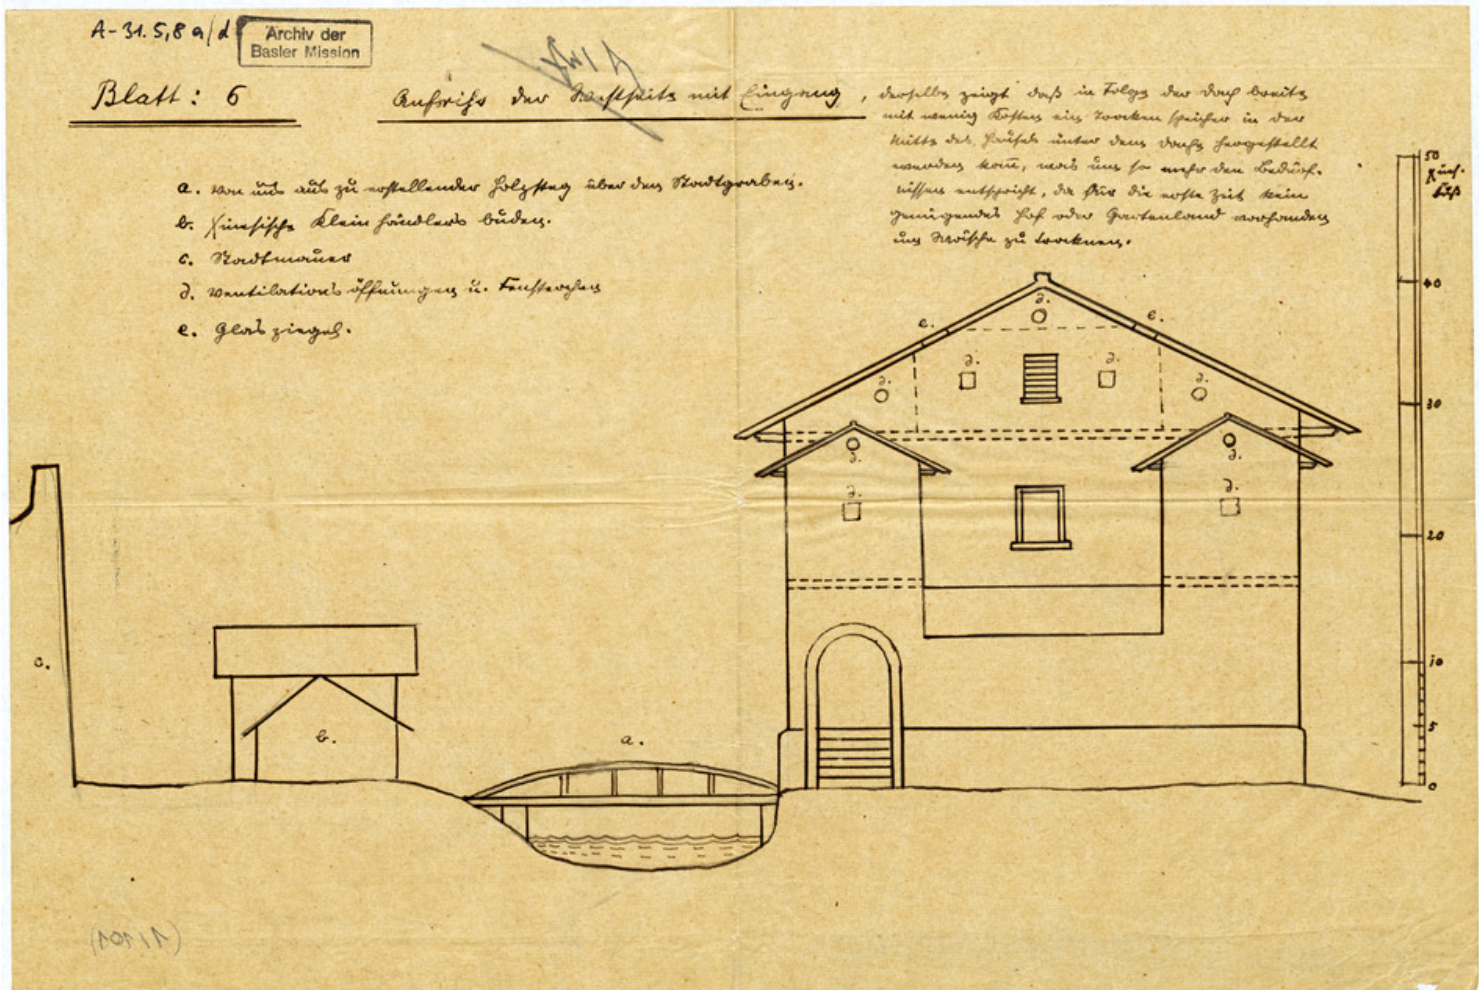 A-31.5,8 a/d
Archiv der
Basler Mission
Blatt: 6
Aufriss der Westseite mit Eingang,
derselbe zeigt daß in Folge der Dach breite
mit wenig Kosten ein Trocken speicher in der
Mitte des Hauses unter dem Dache hergestellt
werden kann, was um so mehr den Bedürf-
nissen entspricht, da für die erste Zeit kein
genügendes Hof oder Gartenland vorhanden
um Wäsche zu trocknen.
a. von uns aus zu erstellender Holzsteg über den Stadtgraben.
b. Chinesische Kleinhändlers buden.
c. Stadtmauer
d. Ventilations öffnungen u.
e. Glasziegel.
50
40
30
20
10
5
0
e.
d.
e.
d.
d.
d.
d.
d.
d.
d.
d.
c.
b.
a.
(101,1)